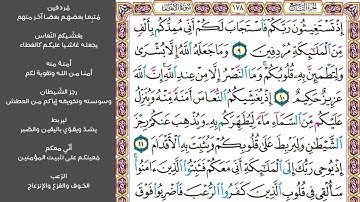 الجزء التاسع
١٧٨
سورة الأنفال
إِذْ تَسْتَغِيثُونَ رَبَّكُمْ فَاسْتَجَابَ لَكُمْ أَنِّي مُمِدُّكُم بِأَلْفٍ
مِّنَ الْمَلَائِكَةِ مُرْدِفِينَ ٩ وَمَا جَعَلَهُ اللَّهُ إِلَّا بُشْرَىٰ
وَلِتَطْمَئِنَّ بِهِ قُلُوبُكُمْ وَمَا النَّصْرُ إِلَّا مِنْ عِندِ اللَّهِ إِنَّ اللَّهَ
عَزِيزٌ حَكِيمٌ ١٠ إِذْ يُغَشِّيكُمُ النُّعَاسَ أَمَنَةً مِّنْهُ وَيُنَزِّلُ
عَلَيْكُم مِّنَ السَّمَاءِ مَاءً لِّيُطَهِّرَكُم بِهِ وَيُذْهِبَ عَنكُمْ رِجْزَ
الشَّيْطَانِ وَلِيَرْبِطَ عَلَىٰ قُلُوبِكُمْ وَيُثَبِّتَ بِهِ الْأَقْدَامَ ١١
إِذْ يُوحِي رَبُّكَ إِلَى الْمَلَائِكَةِ أَنِّي مَعَكُمْ فَثَبِّتُوا الَّذِينَ آمَنُوا
سَأُلْقِي فِي قُلُوبِ الَّذِينَ كَفَرُوا الرُّعْبَ فَاضْرِبُوا فَوْقَ
مردفين
متبعا بعضهم بعضا آخر منهم
يغشيكم النعاس
يجعله غاشيا عليكم كالغطاء
أمنة منه
أمنا من الله وتقوية لكم
رجز الشيطان
وسوسته وتخويفه إياكم من العطش
ليربط
يشد ويقوي باليقين والصبر
أني معكم
معينكم على تثبيت المؤمنين
الرعب
الخوف والفزع والإنزعاج